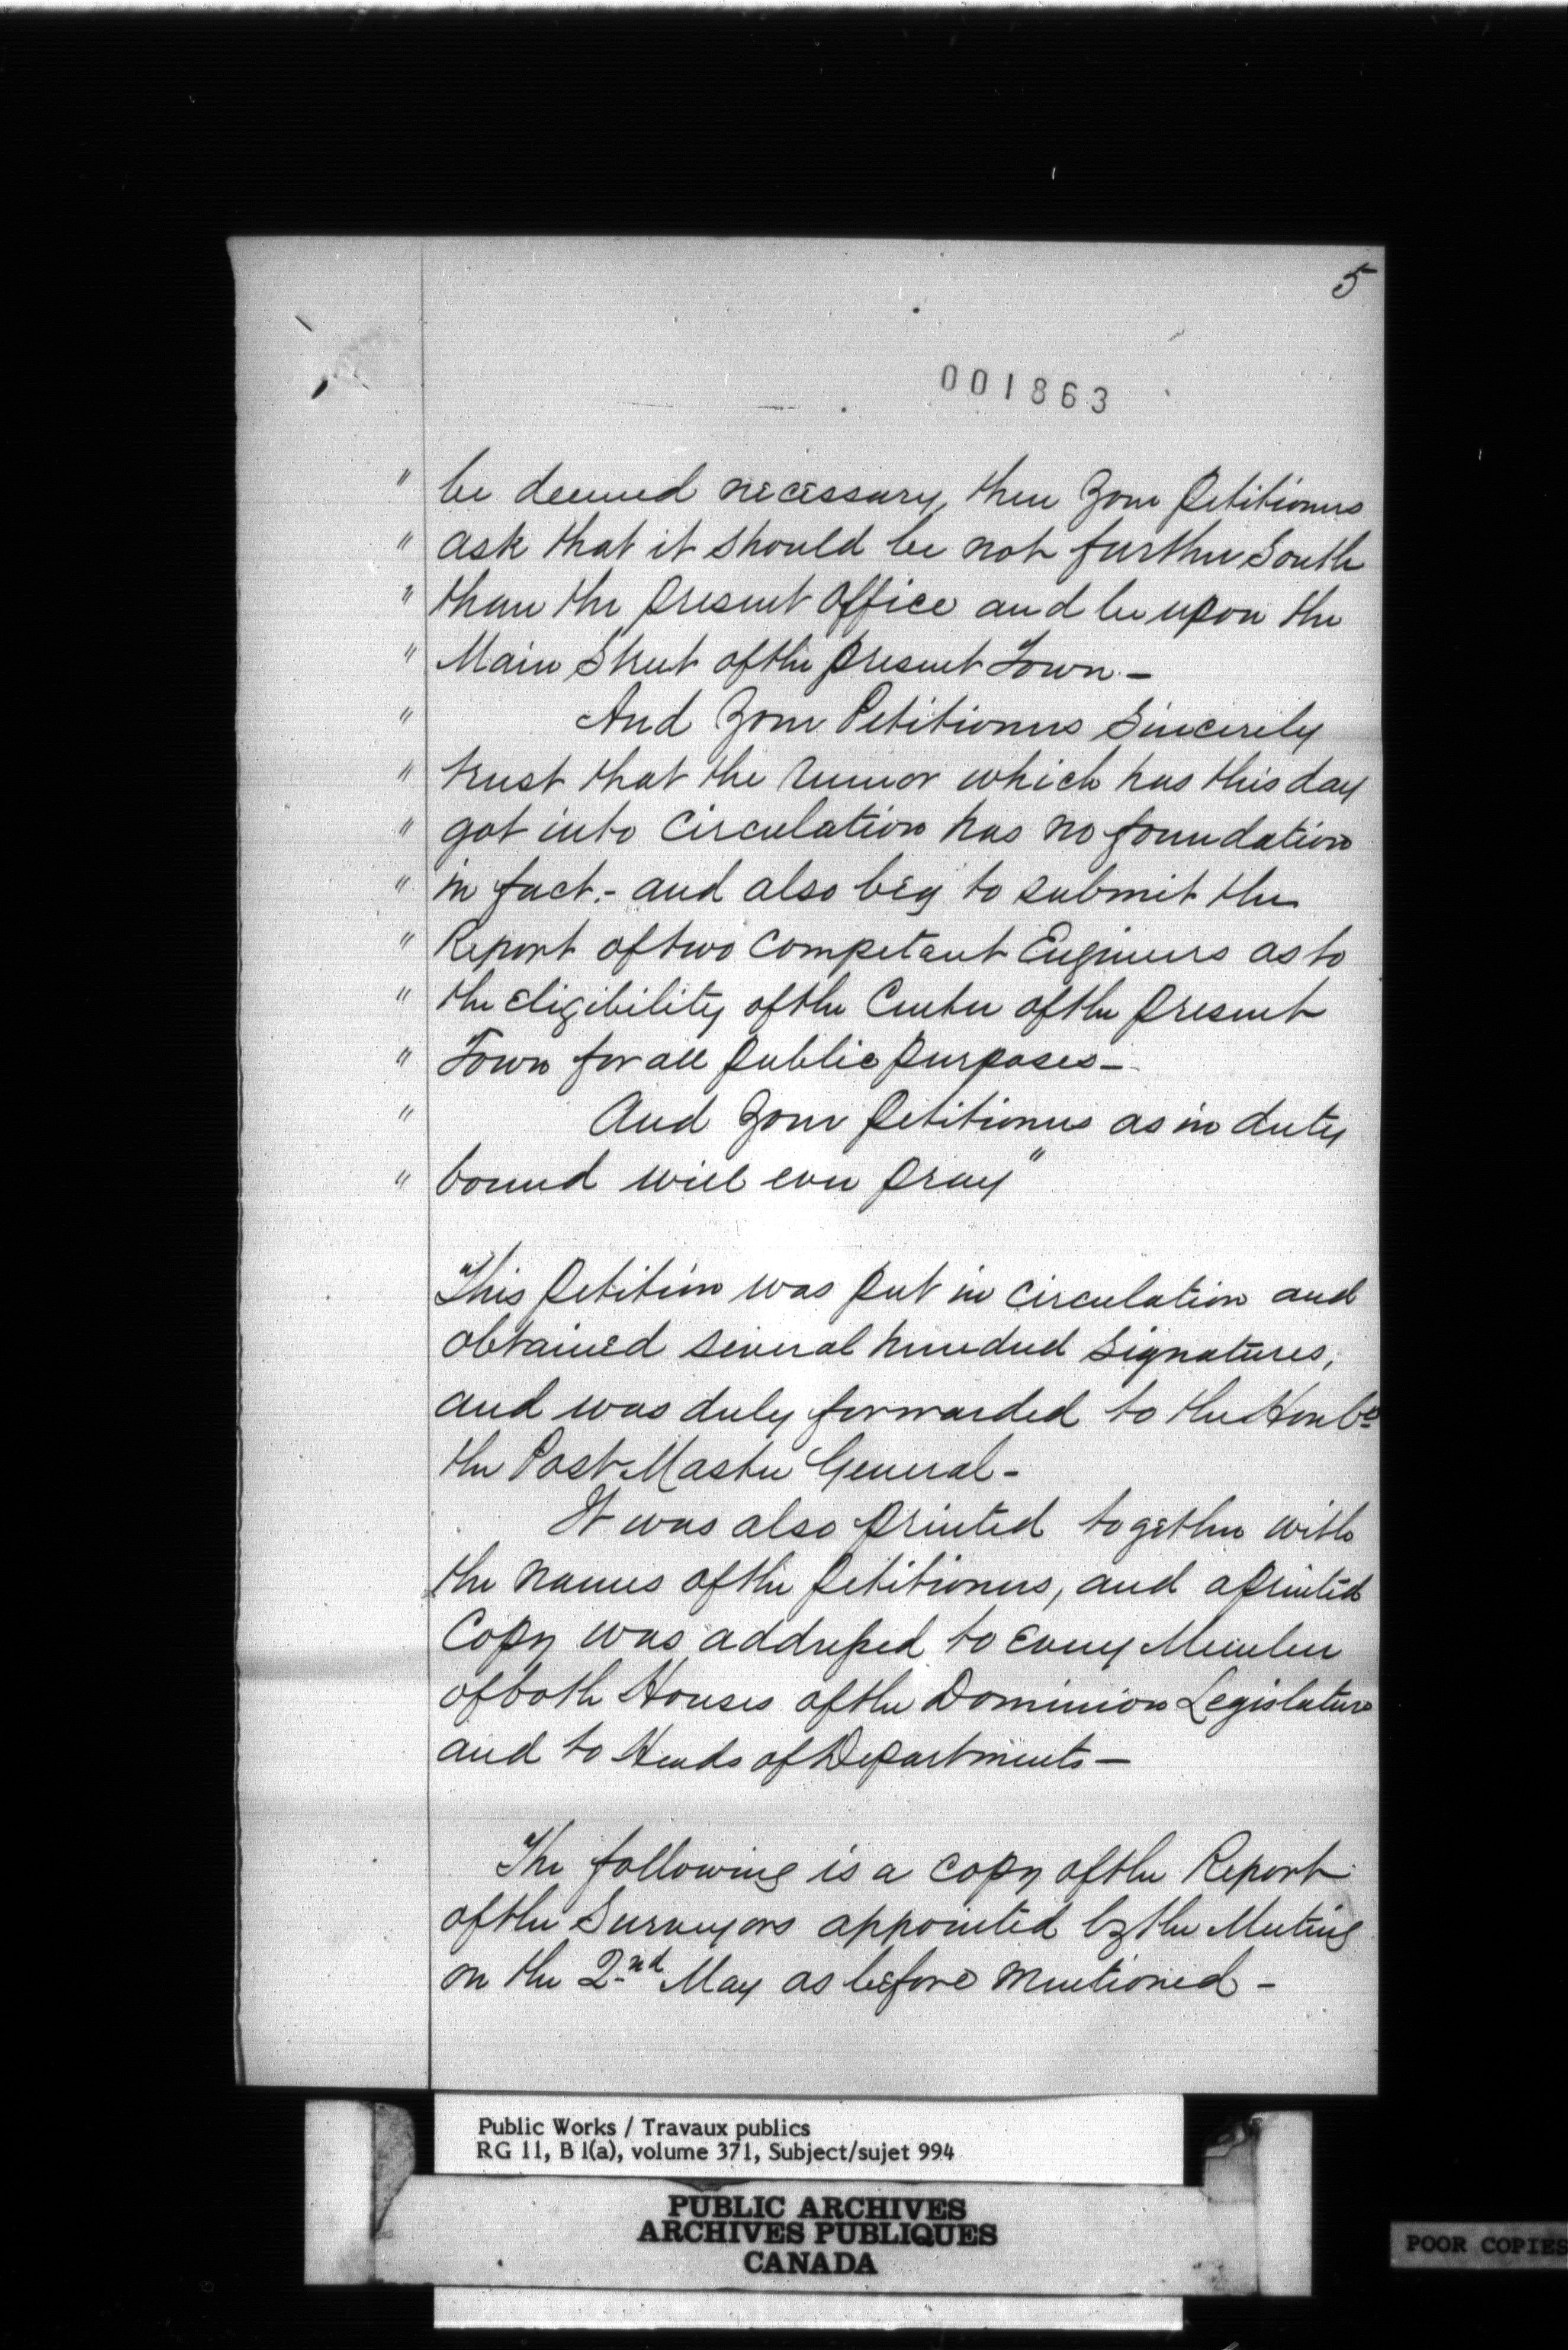 5
001863
" be deemed necessary, then Your Petitioners
" ask that it should be not further South
" than the present Office and be upon the
" Main Street of the present Town —
" And Your Petitioners Sincerely
" trust that the rumor which has this day
" got into Circulation has no foundation
" in fact. - and also beg to submit the
" Report of two Competant Engineers as to
" the eligibility of the Center of the present
" Town for all public purposes —
" And Your Petitioners as in duty
" bound will ever pray"
This petition was put in Circulation and
obtained several hundred Signatures,
and was duly forwarded to the Honble
the Post Master General -
It was also printed together with
the names of the petitioners, and a printed
Copy was addressed to every Member
of both Houses of the Dominion Legislature
and to Heads of Departments —
The following is a copy of the Report
of the Surveyors appointed by the Meeting
on the 2nd May as before mentioned -
Public Works / Travaux publics
RG 11, B 1(a), volume 371, Subject/sujet 994
PUBLIC ARCHIVES
ARCHIVES PUBLIQUES
CANADA
POOR COPIES